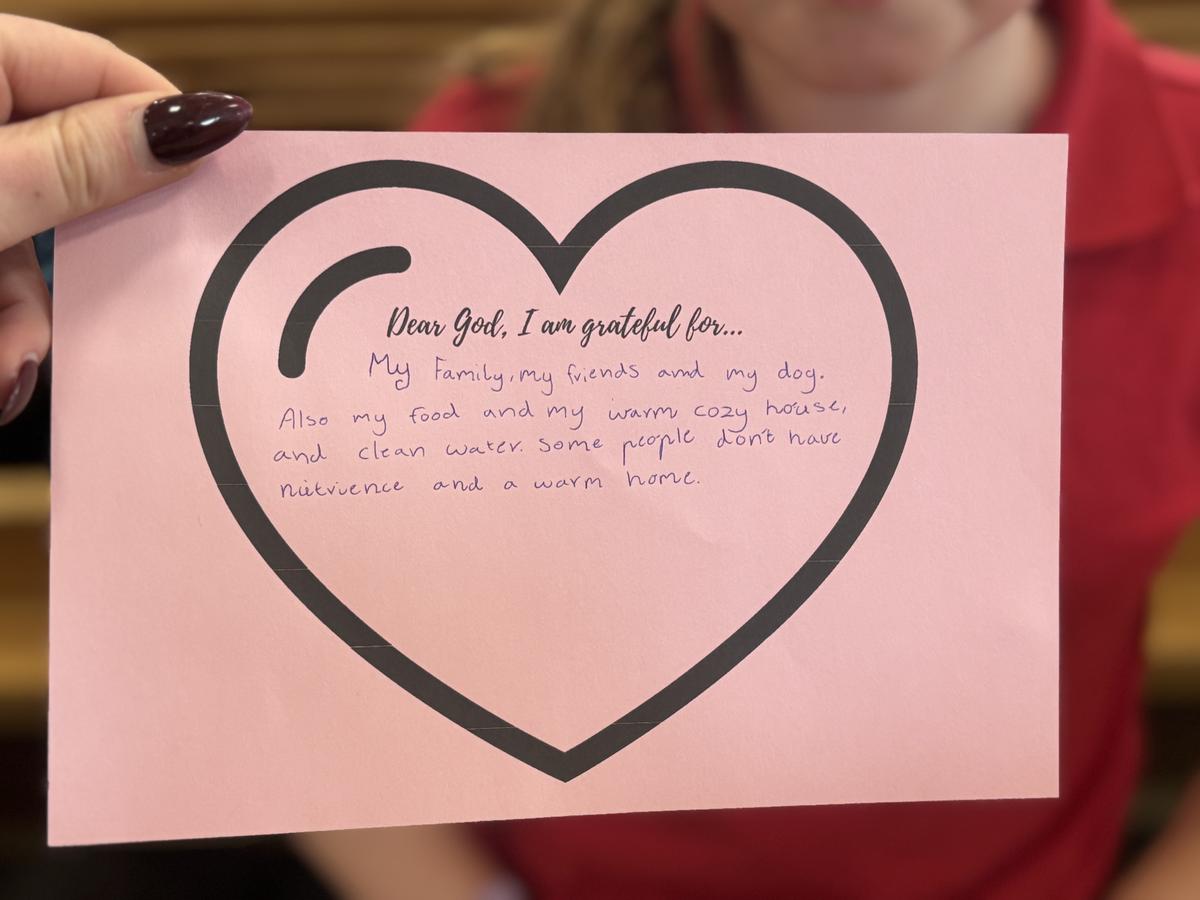 Dear God, I am grateful for...
My Family, my friends and my dog.
Also my food and my warm cozy house,
and clean water. Some people don't have
nutrience and a warm home.